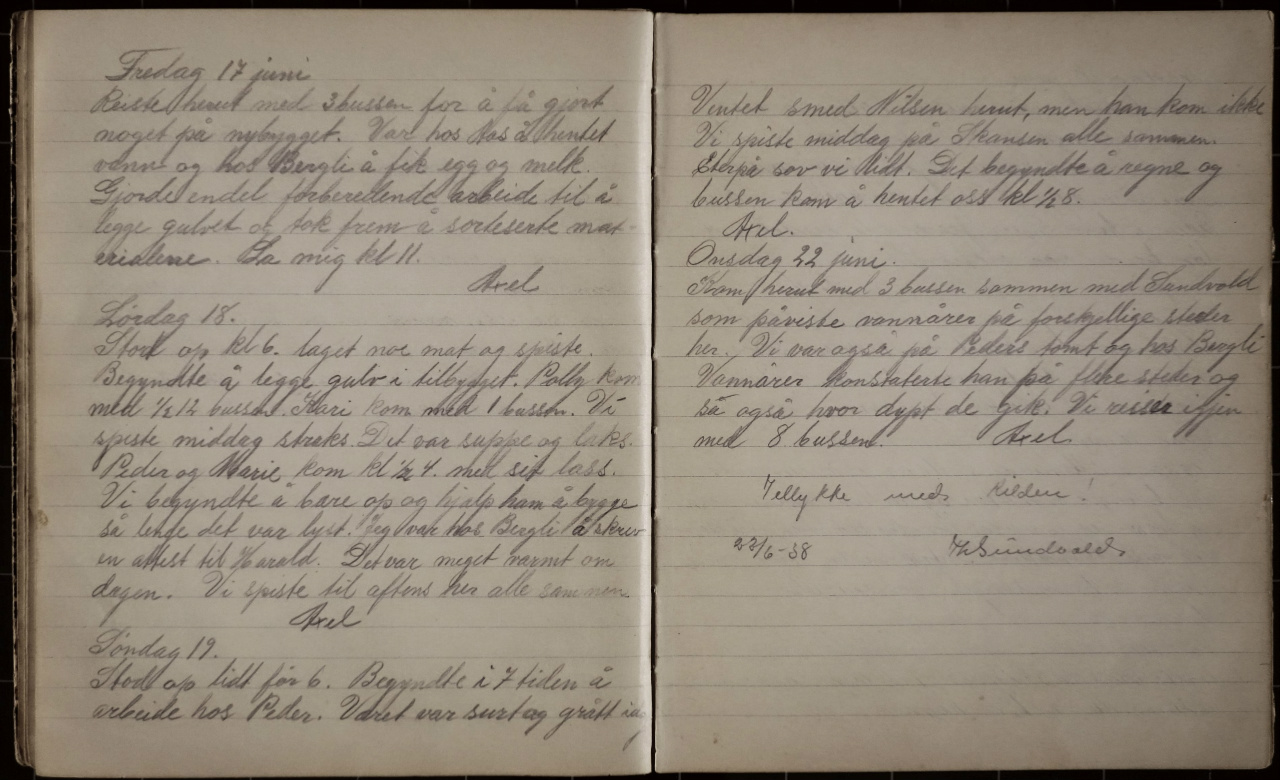 Fredag 17 juni
Reiste herut med 3 bussen for å få gjort
noget på nybygget. Var hos Aas å hentet
vann og hos Bergli å fik egg og melk.
Gjorde endel forberedende arbeide til å
legge gulvet og tok frem å sorteserte mat-
erialene. La mig kl 11.
Axel
Lørdag 18.
Stod op kl 6. laget noe mat og spiste.
Begyndte å legge gulv i tilbygget. Polly kom
med 1/2 12 bussen. Kari kom med 1 bussen. Vi
spiste middag straks. Det var suppe og laks.
Peder og Marie kom kl 1/2 4. med sit lass.
Vi begyndte å bære op og hjalp ham å bygge
så lenge det var lyst. Jeg var hos Bergli å skrev
en attest til Harald. Det var meget varmt om
dagen. Vi spiste til aftens her alle sammen
Axel
Søndag 19.
Stod op lidt før 6. Begyndte i 7 tiden å
arbeide hos Peder. Været var surt og grått idag
Ventet smed Nilsen herut, men han kom ikke
Vi spiste middag på Skansen alle sammen.
Eterpå sov vi lidt. Det begyndte å regne og
bussen kom å hentet oss kl 1/2 8.
Axel.
Onsdag 22 juni.
Kom herut med 3 bussen sammen med Sundvold
som påviste vannårer på forskjellige steder
her. Vi var også på Peders tomt og hos Bergli
Vannårer konstaterte han på flere steder og
så også hvor dypt de gik. Vi reiser igjen
med 8 bussen. Axel
Tillykke med Kilden!
22/6-38 Sundvold